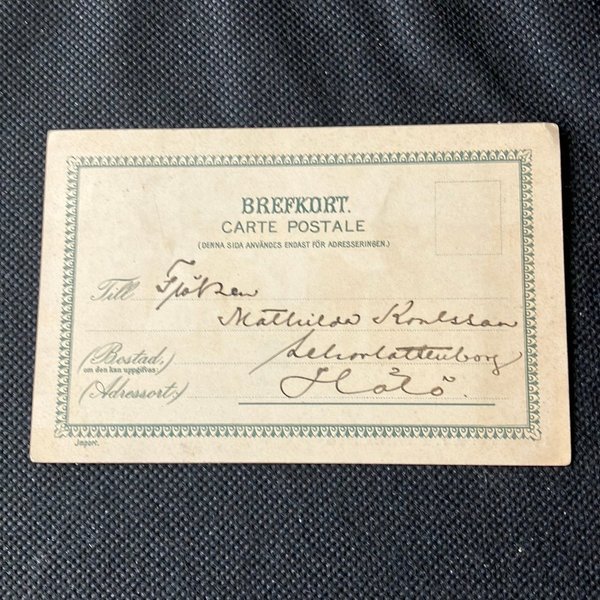 BREFKORT.
CARTE POSTALE
(DENNA SIDA ANVÄNDES ENDAST FÖR ADRESSERINGEN.)
Till Fröken
Mathilda Karlsson
(Bostad,)
om den kan uppgifvas
Hålö.
(Adressort:)
Import.